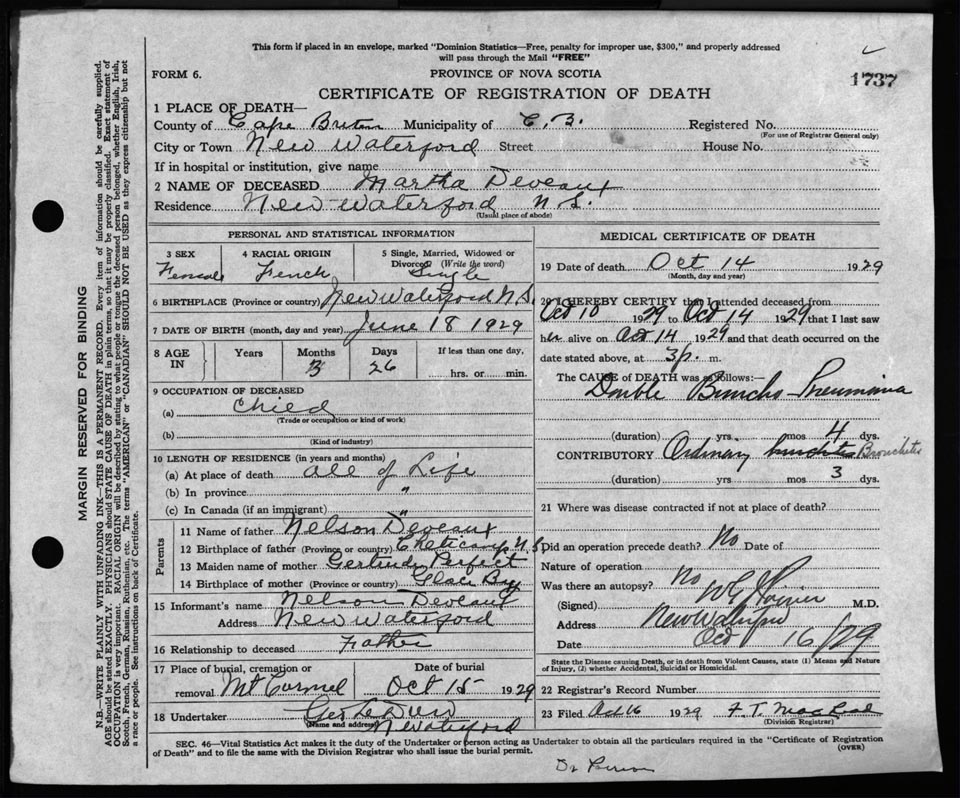 This form if placed in an envelope, marked "Dominion Statistics—Free, penalty for improper use, $300," and properly addressed
will pass through the Mail "FREE"
FORM 6.
PROVINCE OF NOVA SCOTIA
1737
CERTIFICATE OF REGISTRATION OF DEATH
1 PLACE OF DEATH—
County of Cape Breton Municipality of C.B. Registered No.
(For use of Registrar General only)
City or Town New Waterford Street House No.
If in hospital or institution, give name
2 NAME OF DECEASED Martha Deveaux
Residence New Waterford N.S.
(Usual place of abode)
PERSONAL AND STATISTICAL INFORMATION
3 SEX Female
4 RACIAL ORIGIN French
5 Single, Married, Widowed or Divorced (Write the word) Single
6 BIRTHPLACE (Province or country) New Waterford N.S.
7 DATE OF BIRTH (month, day and year) June 18 1929
8 AGE IN Years Months 3 Days 26 If less than one day, hrs. or min.
9 OCCUPATION OF DECEASED
(a) Child
(Trade or occupation or kind of work)
(b)
(Kind of industry)
10 LENGTH OF RESIDENCE (in years and months)
(a) At place of death all of Life
(b) In province "
(c) In Canada (if an immigrant) "
Parents
11 Name of father Nelson Deveaux
12 Birthplace of father (Province or country) Cheticamp N.S.
13 Maiden name of mother Gertrude Perfect
14 Birthplace of mother (Province or country) Glace Bay
15 Informant's name Nelson Deveaux
Address New Waterford
16 Relationship to deceased Father
17 Place of burial, cremation or removal Mt Carmel
Date of burial Oct 15 1929
18 Undertaker
(Name and address) N Waterford
MEDICAL CERTIFICATE OF DEATH
19 Date of death Oct 14 1929
(Month, day and year)
20 I HEREBY CERTIFY that I attended deceased from
Oct 10 1929 to Oct 14 1929 that I last saw
her alive on Oct 14 1929 and that death occurred on the
date stated above, at 3 p. m.
The CAUSE of DEATH was as follows:—
Double Broncho-Pneumonia
(duration) yrs. mos 4 dys.
CONTRIBUTORY Ordinary bronchitis Bronchitis
(duration) yrs mos 3 dys.
21 Where was disease contracted if not at place of death?
Did an operation precede death? No Date of
Nature of operation
Was there an autopsy? No
(Signed) M.D.
Address New Waterford
Date Oct 16/29
State the Disease causing Death, or in death from Violent Causes, state (1) Means and Nature
of Injury, (2) whether Accidental, Suicidal or Homicidal.
22 Registrar's Record Number
23 Filed Oct 16 1929 F. T.
(Division Registrar)
SEC. 46—Vital Statistics Act makes it the duty of the Undertaker or person acting as Undertaker to obtain all the particulars required in the "Certificate of Registration
of Death" and to file the same with the Division Registrar who shall issue the burial permit.
(OVER)
Dr
MARGIN RESERVED FOR BINDING
N.B.—WRITE PLAINLY WITH UNFADING INK—THIS IS A PERMANENT RECORD. Every item of information should be carefully supplied.
AGE should be stated EXACTLY. PHYSICIANS should STATE CAUSE OF DEATH in plain terms, so that it may be properly classified. Exact statement of
OCCUPATION is very important. RACIAL ORIGIN will be described by stating to what people or tongue the deceased person belonged, whether English, Irish,
Scotch, French, German, Russian, Ruthenian, etc. The terms "AMERICAN" or "CANADIAN" SHOULD NOT BE USED as they express citizenship but not
a race or people. See instructions on back of Certificate.